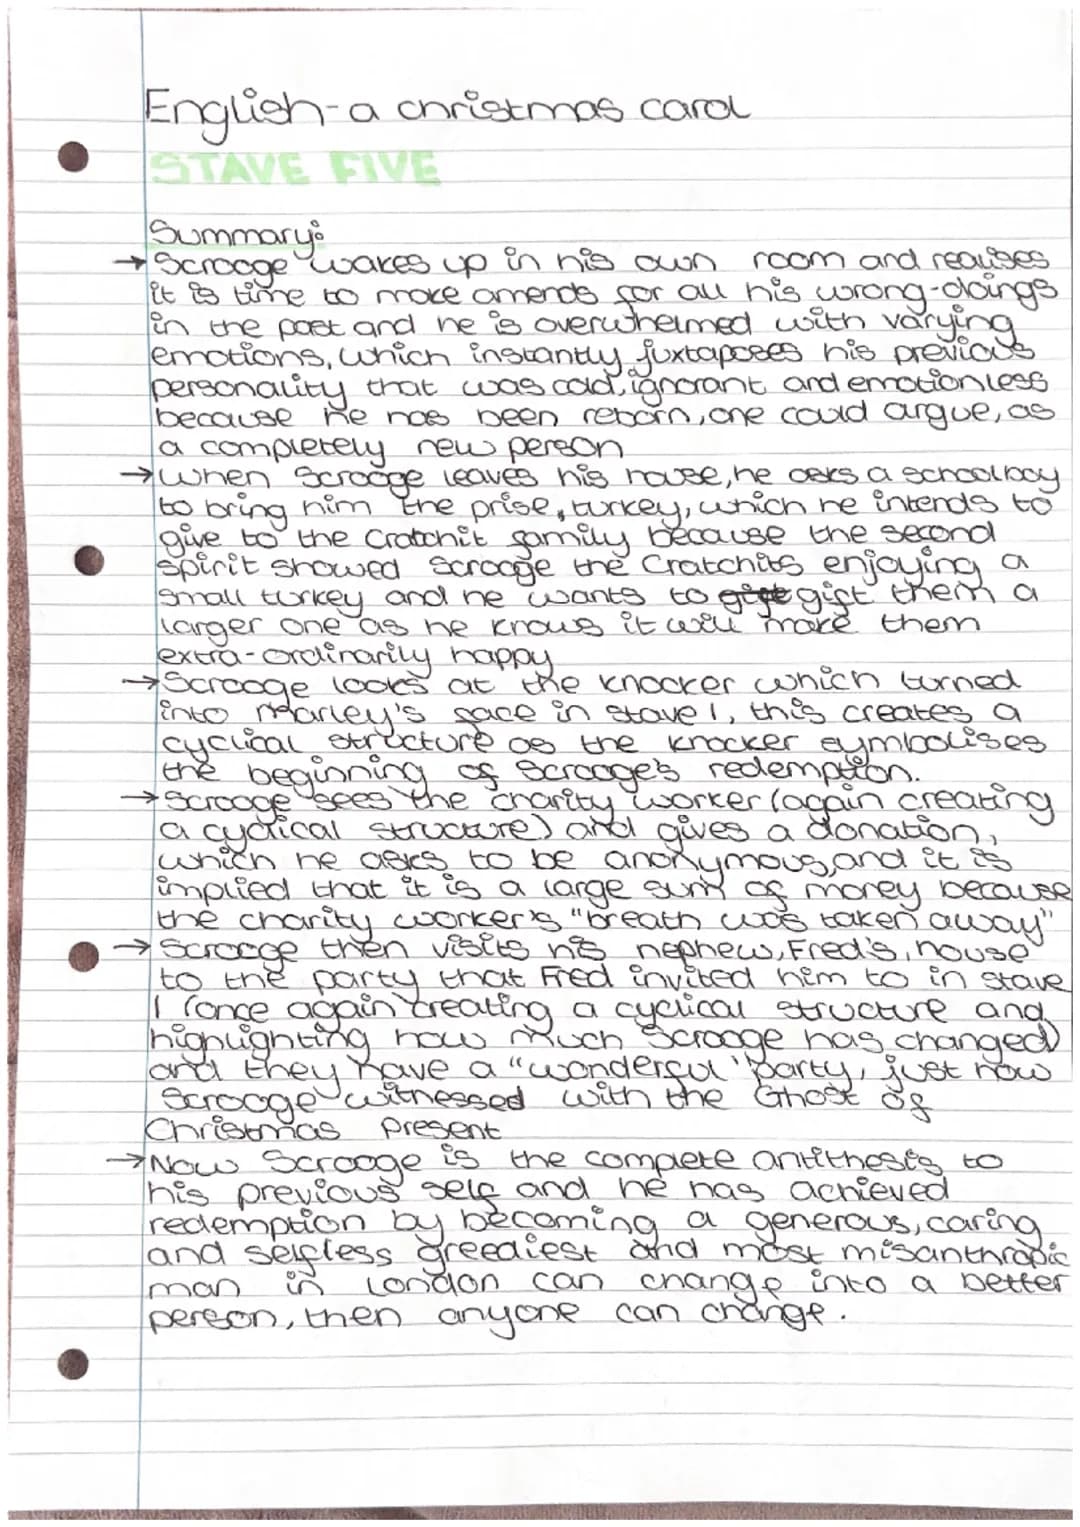 English - a christmas carol
STAVE FIVE
Summary:
→ Scrooge wakes up in his own room and realises
it is time to make amends for all his wrong-doings
in the past and he is overwhelmed with varying
emotions, which instantly juxtaposes his previous
personality that was cold, ignorant and emotionless
because he has been reborn, one could argue, as
a completely new person
→ When Scrooge leaves his house, he asks a schoolboy
to bring him the prise, turkey, which he intends to
give to the Cratchit family because the second
spirit showed Scrooge the Cratchits enjoying a
small turkey and he wants to gift them a
larger one as he knows it will make them
extra-ordinarily happy
→ Scrooge looks at the knocker which turned
into Marley's face in stave 1, this creates a
cyclical structure as the knocker symbolises
the beginning of Scrooge's redemption.
→ Scrooge sees the charity worker (again creating
a cyclical structure) and gives a donation,
which he asks to be anonymous, and it is
implied that it is a large sum of money because
the charity worker's "breath was taken away"
→ Scrooge then visits his nephew, Fred's, house
to the party that Fred invited him to in stave
1 (once again creating a cyclical structure and
highlighting how much Scrooge has changed)
and they have a "wonderful' party, just how
Scrooge witnessed with the Ghost of
Christmas Present
→ Now Scrooge is the complete antithesis to
his previous self and he has achieved
redemption by becoming a generous, caring
and selfless greediest and most misanthropic
man in London can change into a better
person, then anyone can change.